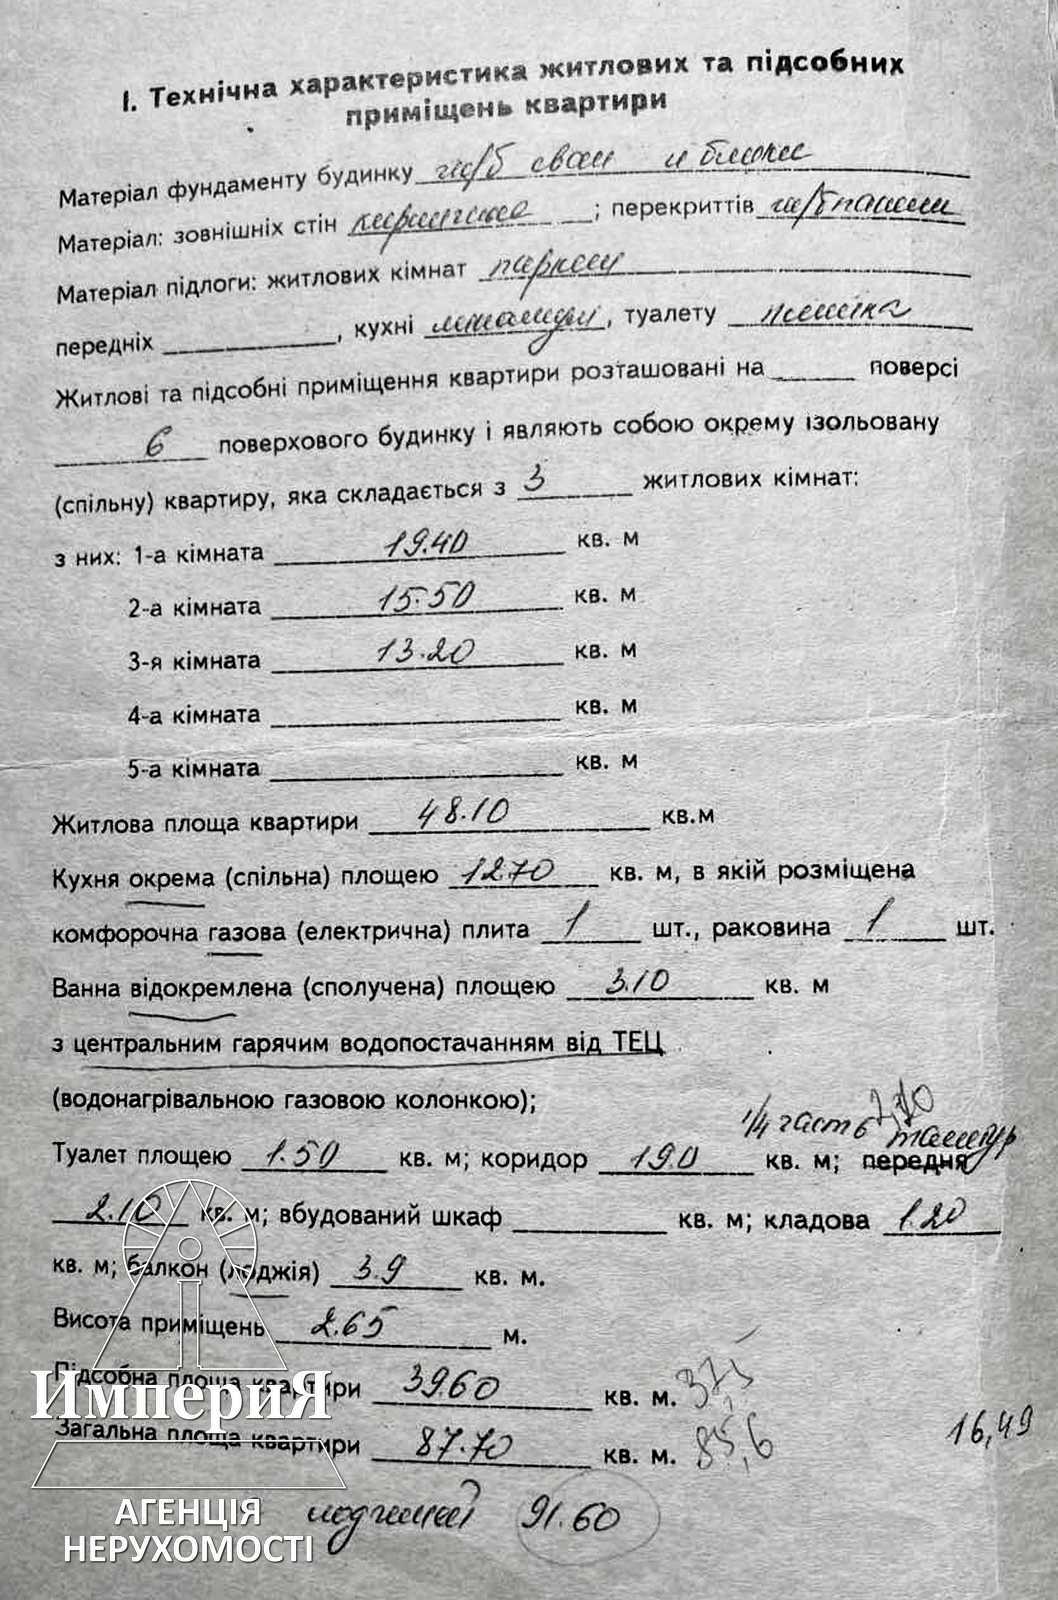 І. Технічна характеристика житлових та підсобних
приміщень квартири
Матеріал фундаменту будинку ж/б сваи и блоки
Матеріал: зовнішніх стін ; перекриттів ж/б
Матеріал підлоги: житлових кімнат паркет
передніх , кухні , туалету плитка
Житлові та підсобні приміщення квартири розташовані на поверсі
6 поверхового будинку і являють собою окрему ізольовану
(спільну) квартиру, яка складається з 3 житлових кімнат:
з них: 1-а кімната 19.40 кв. м
2-а кімната 15.50 кв. м
3-я кімната 13.20 кв. м
4-а кімната кв. м
5-а кімната кв. м
Житлова площа квартири 48.10 кв.м
Кухня окрема (спільна) площею 12.70 кв. м, в якій розміщена
комфорочна газова (електрична) плита 1 шт., раковина 1 шт.
Ванна відокремлена (сполучена) площею 3.10 кв. м
з центральним гарячим водопостачанням від ТЕЦ
(водонагрівальною газовою колонкою);
1/4 часть тамбур
Туалет площею 1.50 кв. м; коридор 19.0 кв. м; передня
2.10 кв. м; вбудований шкаф кв. м; кладова 1.20
кв. м; балкон (лоджія) 3.9 кв. м.
Висота приміщень 2.65 м.
Підсобна площа квартири 39.60 кв. м. 37,5
Загальна площа квартири 87.70 кв. м. 85,6
16,49
лоджией 91.60
ИмпериЯ
АГЕНЦІЯ
НЕРУХОМОСТІ